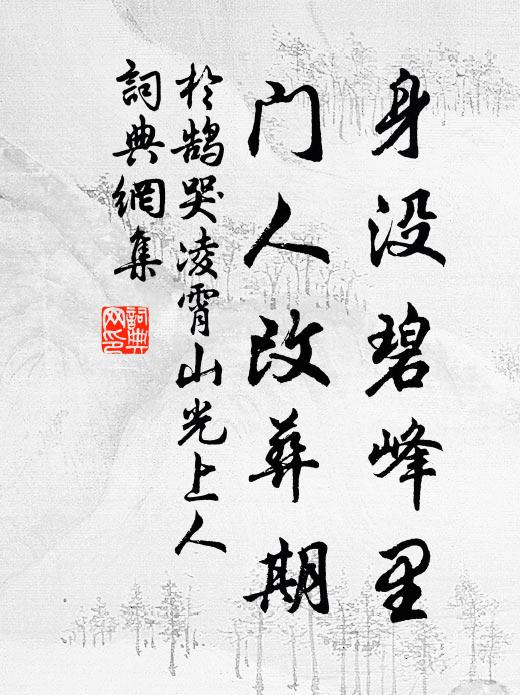 身没碧峰里
门人改葬期
於鹄哭凌霄山光上人
詞典網集
詞典網印